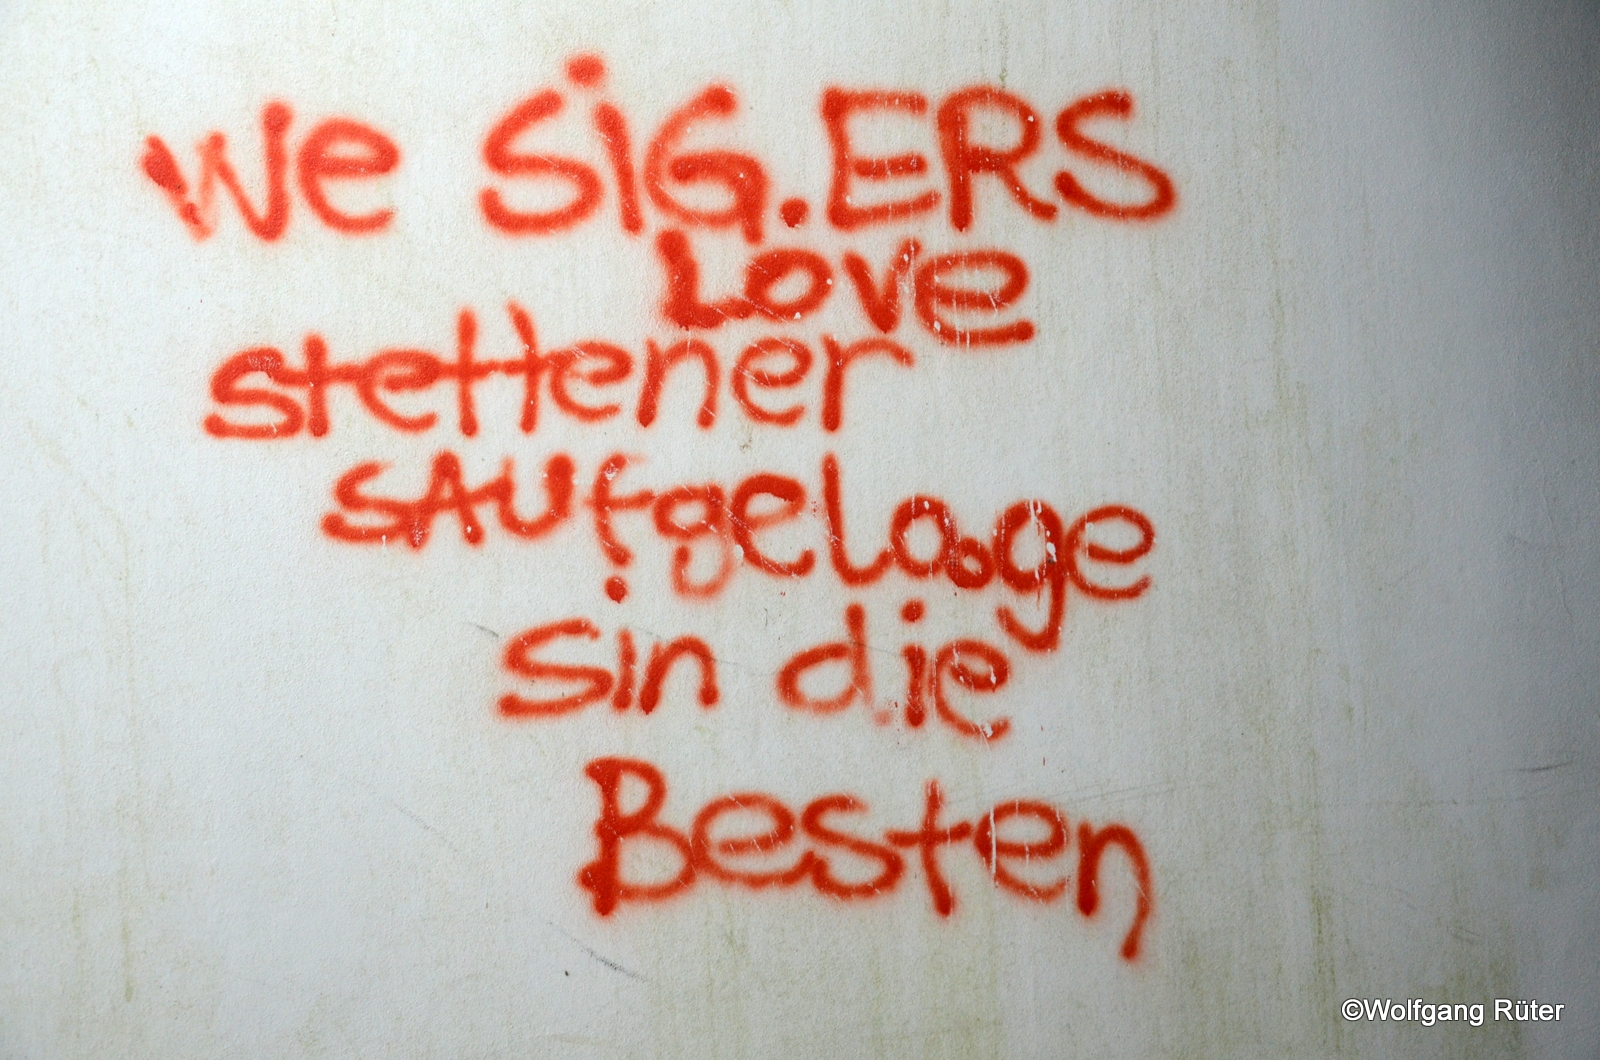 we SiG.ERS
Love
stettener
sAufgelage
sin die
Besten
©Wolfgang Rüter